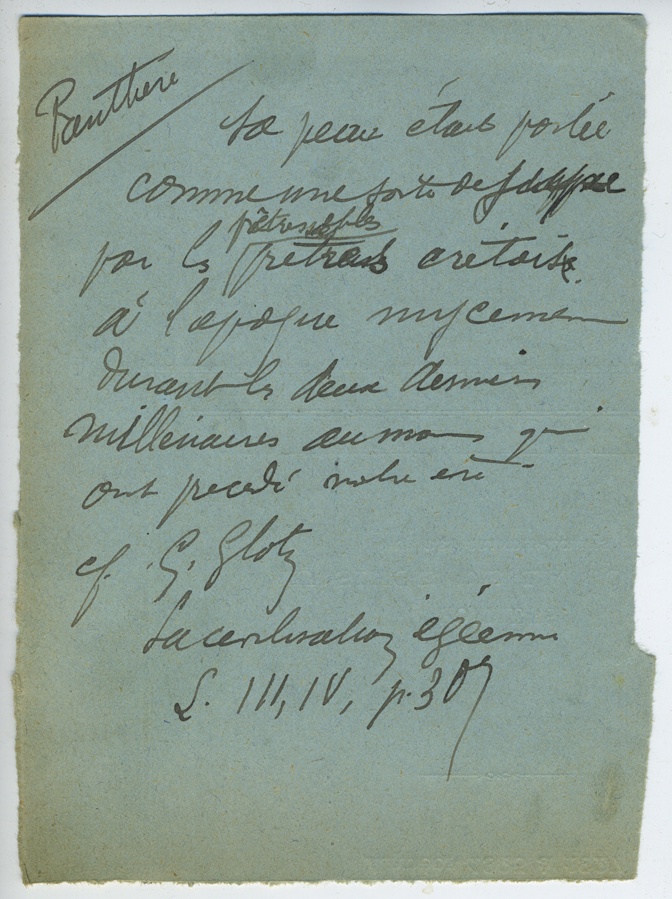 Panthère
Sa peau était portée
comme une sorte de
prêtresses et les
par les prêtres crétois
à l'époque mycenienne
durant les deux derniers
millénaires au moins qui
ont precedé notre ère -
cf. G. Glotz
La civilisation égéenne
L. III, IV, p. 307